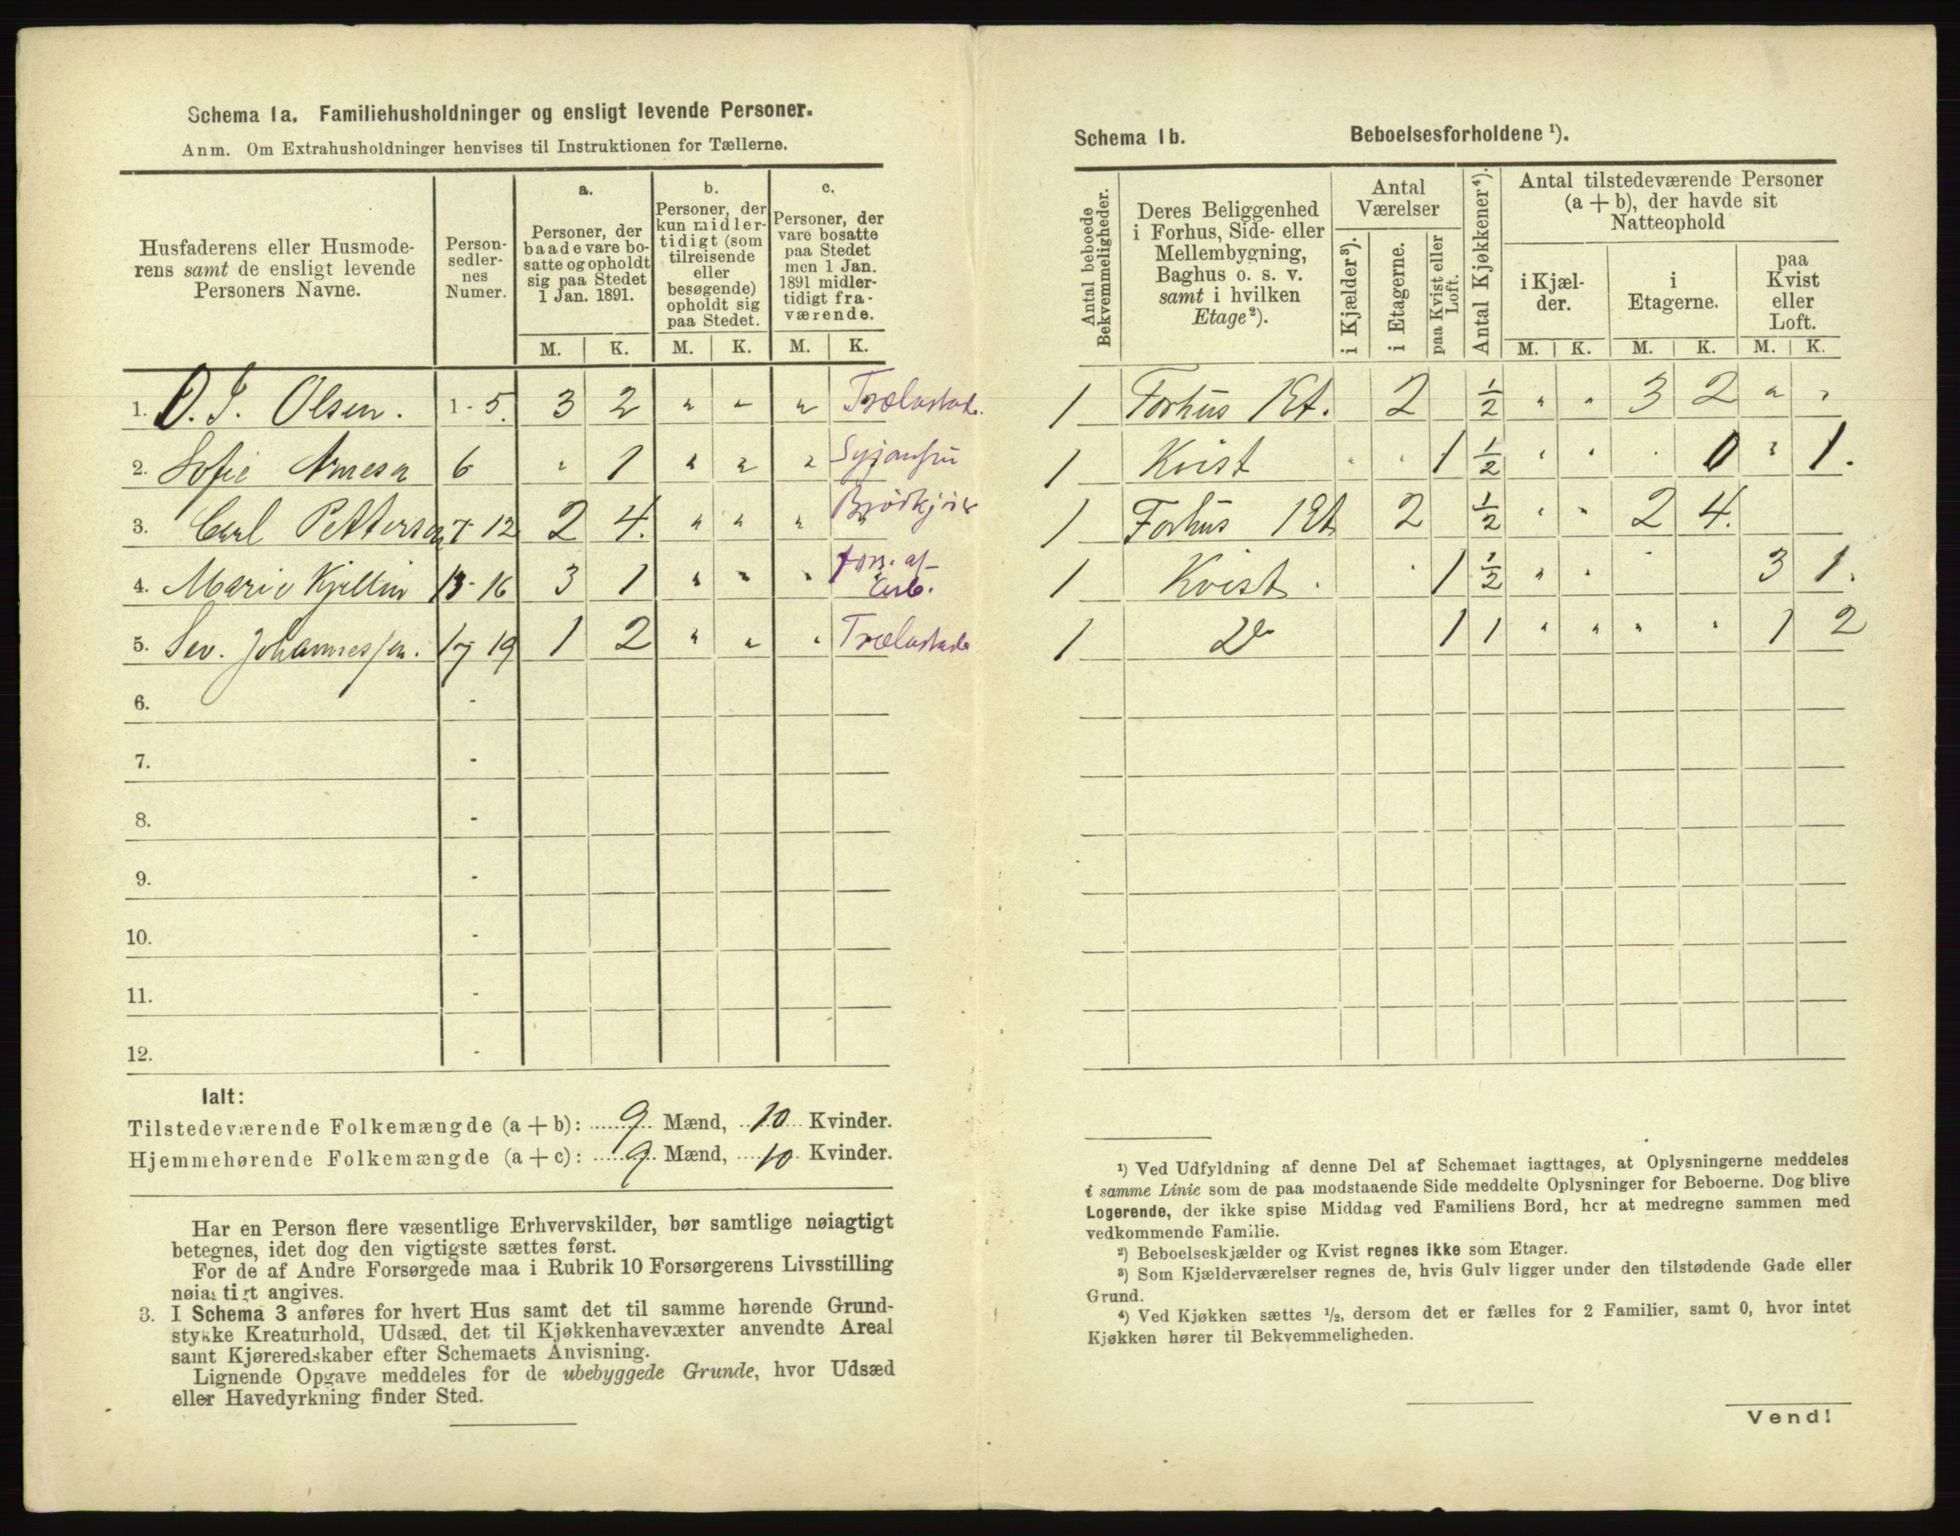 Schema 1a. Familiehusholdninger og ensligt levende Personer.
Anm. Om Extrahusholdninger henvises til Instruktionen for Tællerne.
Husfaderens eller Husmode-
rens samt de ensligt levende
Personers Navne.
Person-
sedler-
nes
Numer.
a.
Personer, der
baade vare bo-
satte og opholdt
sig paa Stedet
1 Jan. 1891.
b.
Personer, der
kun midler-
tidigt (som
tilreisende
eller
besøgende)
opholdt sig
paa Stedet.
c.
Personer, der
vare bosatte
paa Stedet
men 1 Jan.
1891 midler-
tidigt fra-
værende.
M. K. M. K. M. K.
1. O. J. Olsen. 1 - 5. 3 2 " " " Trælastarb.
2. Sofie 6 " 1 " " "
3. Carl Pettersen 7 - 12 2 4. " " "
4. Marie Kjellin 13 - 16 3 1 " " " fors. af
5. Sev. Johannessen. 17 19 1 2 " " " Trælastarb
6. -
7. -
8. -
9. -
10. -
11. -
12. -
Ialt:
Tilstedeværende Folkemængde (a + b): 9 Mænd, 10 Kvinder.
Hjemmehørende Folkemængde (a + c): 9 Mænd, 10 Kvinder.
Har en Person flere væsentlige Erhvervskilder, bør samtlige nøiagtigt
betegnes, idet dog den vigtigste sættes først.
For de af Andre Forsørgede maa i Rubrik 10 Forsørgerens Livsstilling
nøiagtigt angives.
3. I Schema 3 anføres for hvert Hus samt det til samme hørende Grund-
stykke Kreaturhold, Udsæd, det til Kjøkkenhavevæxter anvendte Areal
samt Kjøreredskaber efter Schemaets Anvisning.
Lignende Opgave meddeles for de ubebyggede Grunde, hvor Udsæd
eller Havedyrkning finder Sted.
Schema 1b. Beboelsesforholdene ¹).
Antal beboede
Bekvemmeligheder.
Deres Beliggenhed
i Forhus, Side- eller
Mellembygning,
Baghus o. s. v.
samt i hvilken
Etage ²).
Antal
Værelser
i Kjælder ³).
i Etagerne.
paa Kvist eller
Loft.
Antal Kjøkkener ⁴).
Antal tilstedeværende Personer
(a + b), der havde sit
Natteophold
i Kjæl-
der.
i
Etagerne.
paa
Kvist
eller
Loft.
M. K. M. K. M. K.
1 Forhus 1 Et. 2 ½ " " 3 2 " "
1 Kvist " " 1 ½ " " " 0 " 1.
1 Forhus 1 Et 2 ½ " " 2 4.
1 Kvist. " 1 ½ " " " 3 1.
1 Do 1 1 " " " " 1 2
¹) Ved Udfyldning af denne Del af Schemaet iagttages, at Oplysningerne meddeles
i samme Linie som de paa modstaaende Side meddelte Oplysninger for Beboerne. Dog blive
Logerende, der ikke spise Middag ved Familiens Bord, her at medregne sammen med
vedkommende Familie.
²) Beboelseskjælder og Kvist regnes ikke som Etager.
³) Som Kjælderværelser regnes de, hvis Gulv ligger under den tilstødende Gade eller
Grund.
⁴) Ved Kjøkken sættes ½, dersom det er fælles for 2 Familier, samt 0, hvor intet
Kjøkken hører til Bekvemmeligheden.
Vend!